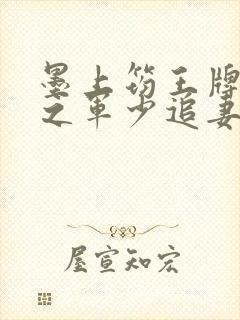 墨上筠王牌
之军少追妻
屋宣知宏